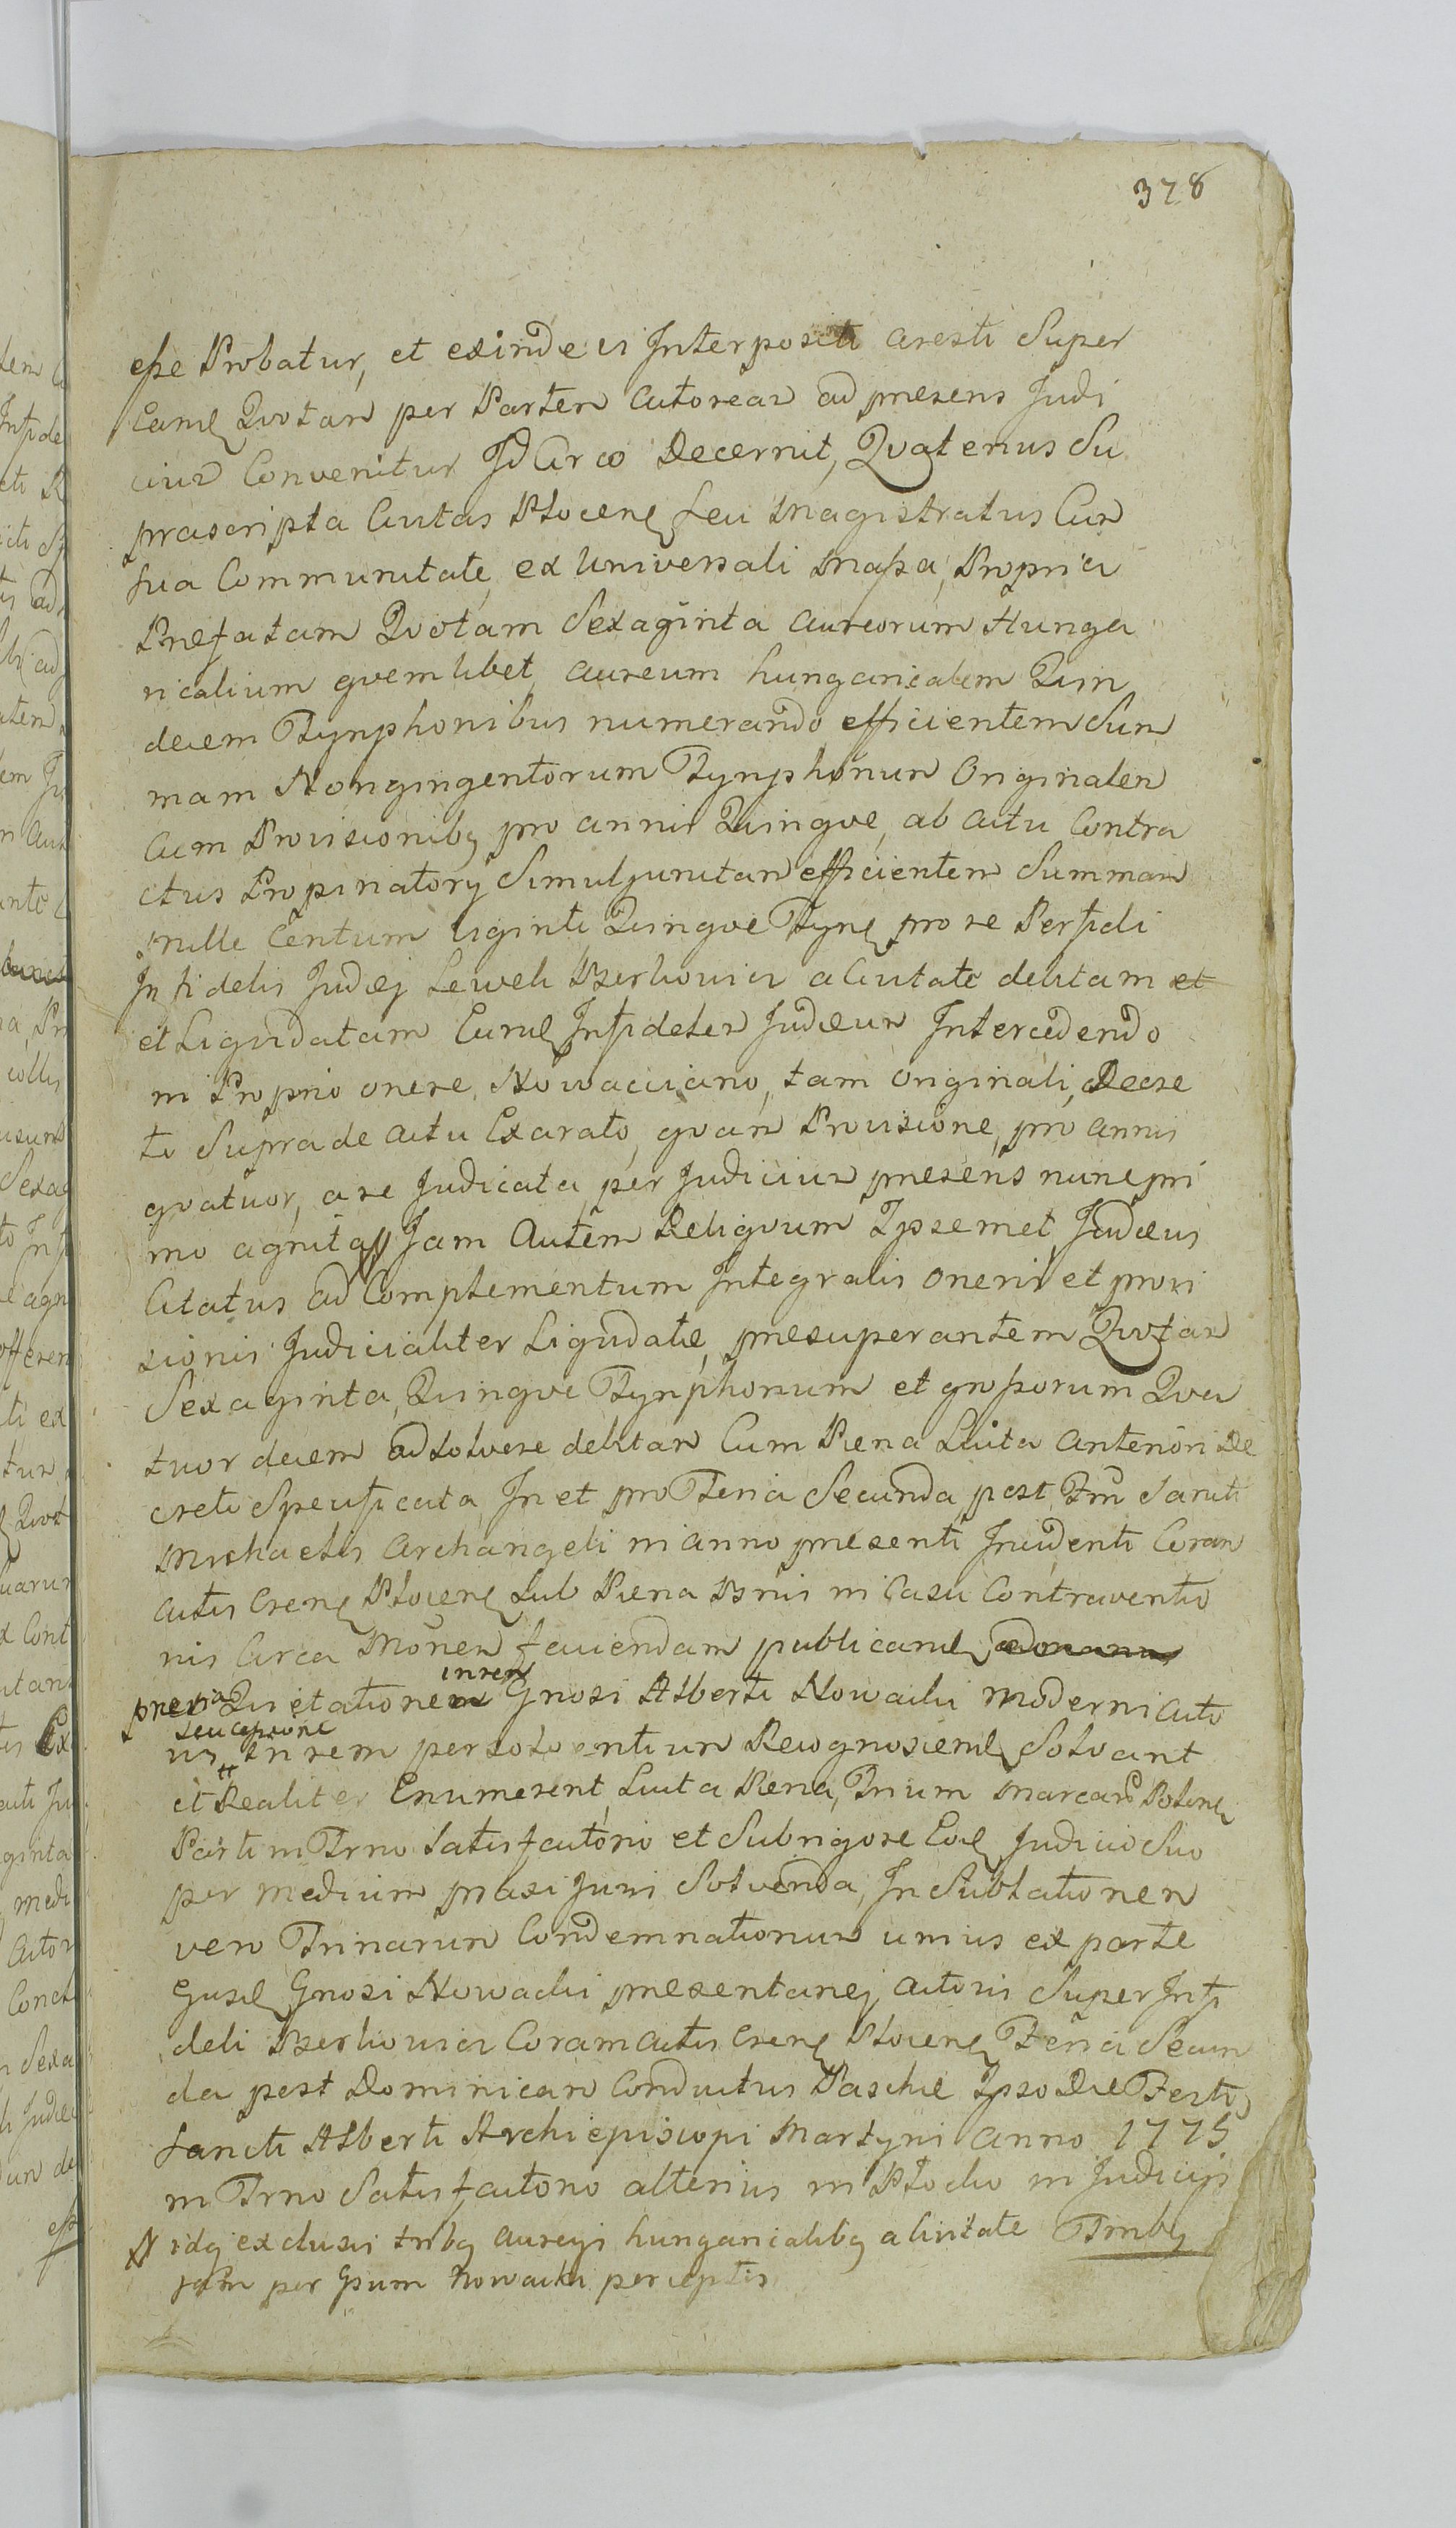 378
eße Probatur, et exinde vi Interpositi aresti Super
eand Qvotam per Partem Actoream ad presens Judi
cium Convenitur Id Circo Decernit, Qvatenus Su
prascripta Civitas Plocens seu Magistratus Cum
sua Communitate, ex Universali Maßa, Propria
Prefatam Qvotam Sexaginta Aureorum Hunga
ricalium qvemlibet aureum hungaricalem Quin
decem Tynphonibus numerando efficientem Sum
mam Nongingentorum Tynphonum Originalem
Cum Provisionibq pro annis Quinqve, ab actu Contra
ctus Propinatory Simuljunctam efficientem Summam
Mille Centum Viginti Quinqve Tynf pro re Perfidi
Infidelis Judej Lewek Berkovicz a Civitate debitam et
et Liqvidatam Eund Infidelem Judeum Intercedendo
in Proprio onere, Nowacciano, tam originali, Decre
to Supra de actu Exarato, qvam Provisione, pro annis
qvatuor, a re Judicata, per Judicium presens nunc pri
mo agnita // Jam Autem Reliqvum Ipsemet Judeus
Citatus ad Complementum Integralis Oneris et provi
sionis Judicialiter Liqvidate, presuperantem Qvotam
Sexaginta, Quinqve Tynphonum et großorum Qva
tuor decem adsolvere debitam Cum Pena Luita anteriori De
creti Specificata, In et pro Feria Secunda post Ftm Sancti
Michaelis Archangeli in anno presenti Incidenti Coram
actis Crens Plocens Sub Pena Bnis in Casu Contraventio
nis Circa Monen faciendam publicand
previa Quietatione in rem Gnosi Alberti Nowacki moderni Acto
ris, seu Cessione In rem persolventium Recognosciend Solvant
et Realiter Enumerent, Luita Pena, Trium Marcaru Polonl
Parti in Trno Satisfactorio et Sub rigore Eod Judicio Suo
per Medium praxi Juri Solvenda, In Sublationem
vero Trinarum Condemnationum unius ex parte
Ejusd Gnosi Nowacki presentanej Actoris Super Infi
deli Berkovicz Coram Actis Crens Plocens Feria Secun
da post Dominicam Conductus Pasche Ipso Die Festi
Sancti Alberti Archiepiscopi Martyris Anno 1775
in Trno Satisfactorio alterius in Plocko in Judicijs
Trnlbq
# idq exclusis tribq aureis hungaricalibq a Civitate
jam per Gsum Nowacki perceptis